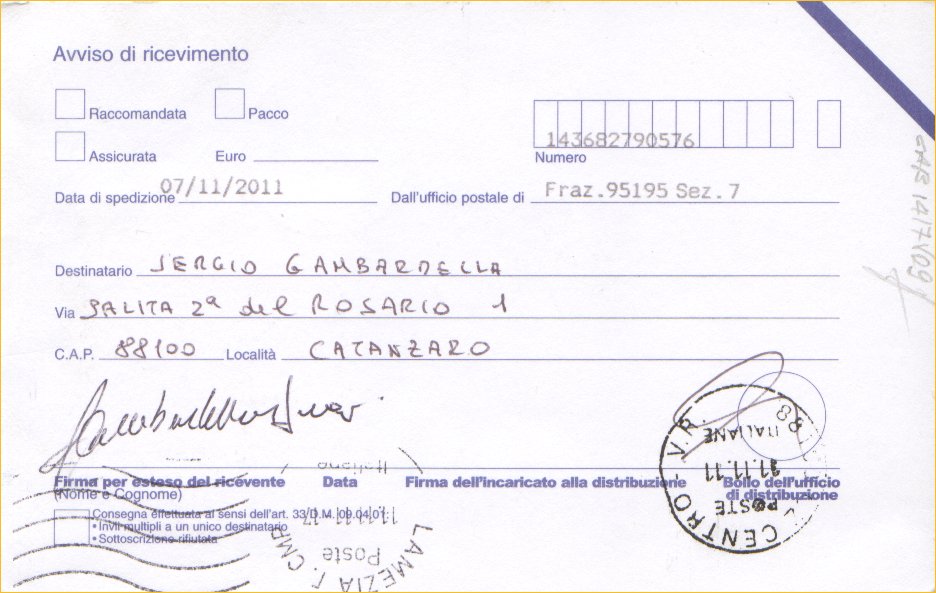 Avviso di ricevimento
Raccomandata Pacco
143682790576
Assicurata Euro Numero
07/11/2011
Data di spedizione Dall'ufficio postale di Fraz.95195 Sez.7
Destinatario SERGIO GAMBARDELLA
Via SALITA 2ª del ROSARIO 1
C.A.P. 88100 Località CATANZARO
Firma per esteso del ricevente Data Firma dell'incaricato alla distribuzione Bollo dell'ufficio
(Nome e Cognome) di distribuzione
Consegna effettuata ai sensi dell'art. 33/D.M. 09.04.01
• Invii multipli a un unico destinatario
• Sottoscrizione rifiutata
Poste
Italiane
LAMEZIA T. CMP
POSTE
ITALIANE
11.11.11
88
CENTRO V.R.